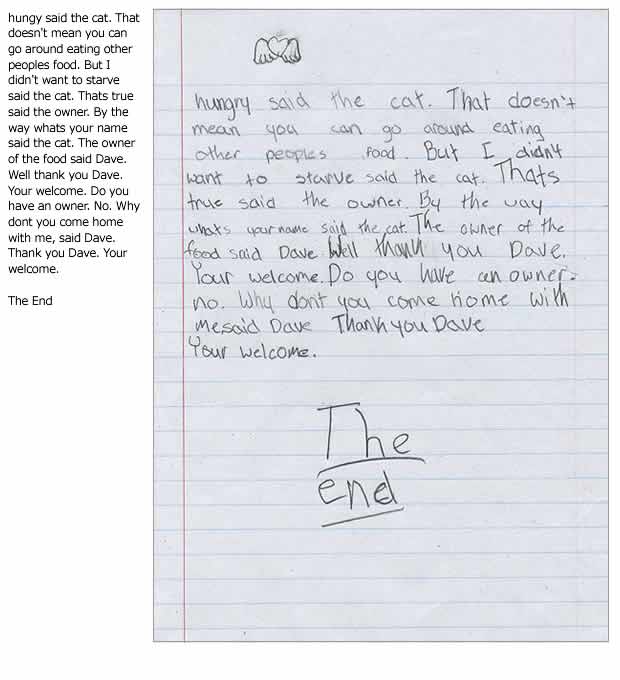 hungy said the cat. That
doesn't mean you can
go around eating other
peoples food. But I
didn't want to starve
said the cat. Thats true
said the owner. By the
way whats your name
said the cat. The owner
of the food said Dave.
Well thank you Dave.
Your welcome. Do you
have an owner. No. Why
dont you come home
with me, said Dave.
Thank you Dave. Your
welcome.
The End
hungry said the cat. That doesn't
mean you can go around eating
other peoples food. But I didn't
want to starve said the cat. Thats
true said the owner. By the way
whats your name said the cat. The owner of the
food said Dave. Well thank you Dave.
Your welcome. Do you have an owner.
no. Why don't you come home with
me said Dave Thank you Dave
Your welcome.
The
end